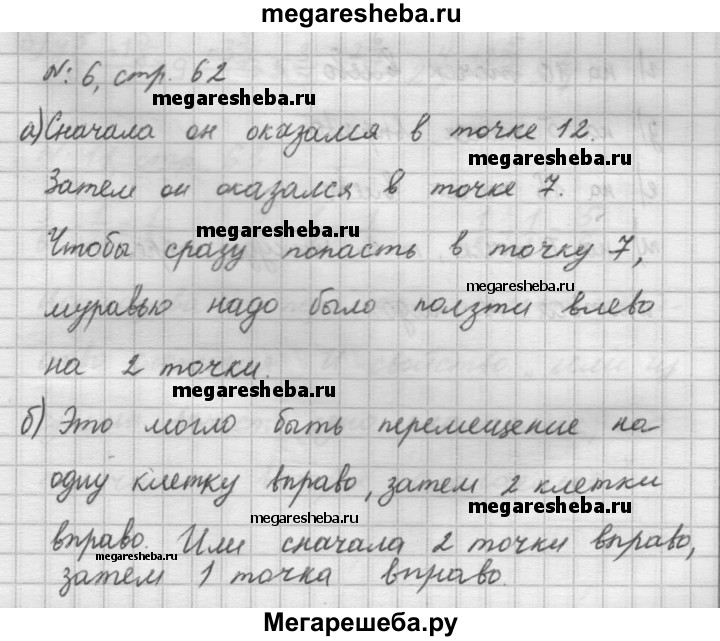 megaresheba.ru
№: 6, стр. 62
megaresheba.ru
а) Сначала он оказался в точке 12.
megaresheba.ru
Затем он оказался в точке 7.
megaresheba.ru
Чтобы сразу попасть в точку 7,
megaresheba.ru
муравью надо было ползти влево
на 2 точки.
megaresheba.ru
б) Это могло быть перемещение на
одну клетку вправо, затем 2 клетки
megaresheba.ru
megaresheba.ru
вправо. Или сначала 2 точки вправо,
megaresheba.ru
затем 1 точка вправо.
Мегарешеба.ру